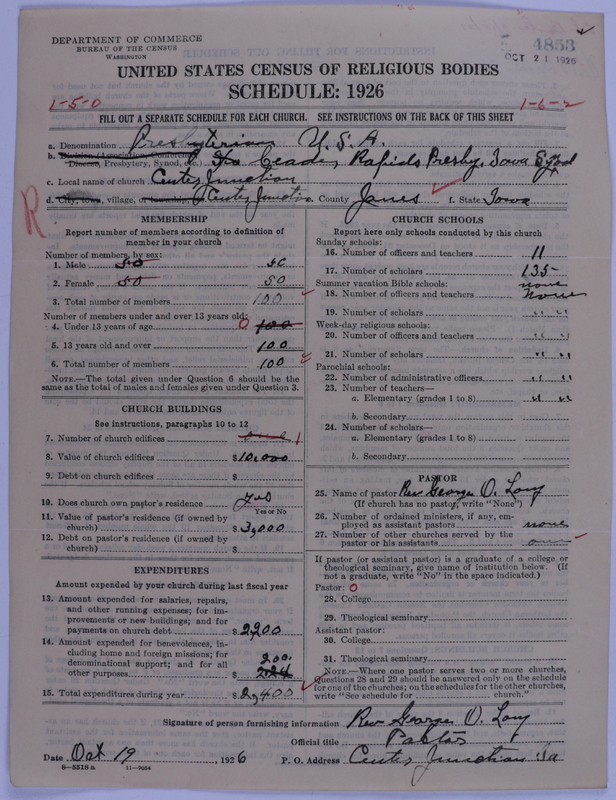 DEPARTMENT OF COMMERCE
BUREAU OF THE CENSUS
WASHINGTON
4853
OCT 21 1926
UNITED STATES CENSUS OF RELIGIOUS BODIES
SCHEDULE: 1926
1-5-0
1-6-2
FILL OUT A SEPARATE SCHEDULE FOR EACH CHURCH. SEE INSTRUCTIONS ON THE BACK OF THIS SHEET
a. Denomination Presbyterian U.S.A.
b. Division (Association, Conference, Diocese, Presbytery, Synod, etc.) Cedar Rapids Presby. Iowa Synod
c. Local name of church Center Junction
d. City, town, village, or township Center Junction e. County Jones f. State Iowa
R
MEMBERSHIP
Report number of members according to definition of
member in your church
Number of members, by sex:
1. Male 50 50
2. Female 50 50
3. Total number of members 100
Number of members under and over 13 years old:
4. Under 13 years of age 0 100
5. 13 years old and over 100
6. Total number of members 100
NOTE.—The total given under Question 6 should be the
same as the total of males and females given under Question 3.
CHURCH BUILDINGS
See instructions, paragraphs 10 to 12
7. Number of church edifices one 1
8. Value of church edifices $10,000
9. Debt on church edifices $
10. Does church own pastor's residence Yes
Yes or No
11. Value of pastor's residence (if owned by
church) $3,000
12. Debt on pastor's residence (if owned by
church) $
EXPENDITURES
Amount expended by your church during last fiscal year
13. Amount expended for salaries, repairs,
and other running expenses; for im-
provements or new buildings; and for
payments on church debt $2,200
14. Amount expended for benevolences, in-
cluding home and foreign missions; for
denominational support; and for all
other purposes 200
15. Total expenditures during year $2,400
CHURCH SCHOOLS
Report here only schools conducted by this church
Sunday schools:
16. Number of officers and teachers 11
17. Number of scholars 135
Summer vacation Bible schools: none
18. Number of officers and teachers none
19. Number of scholars " "
Week-day religious schools:
20. Number of officers and teachers " "
21. Number of scholars " "
Parochial schools:
22. Number of administrative officers " "
23. Number of teachers—
a. Elementary (grades 1 to 8) " "
b. Secondary
24. Number of scholars—
a. Elementary (grades 1 to 8)
b. Secondary
PASTOR
25. Name of pastor Rev George O. Long
(If church has no pastor, write "None")
26. Number of ordained ministers, if any, em-
ployed as assistant pastors none
27. Number of other churches served by the
pastor or his assistants one
If pastor (or assistant pastor) is a graduate of a college or
theological seminary, give name of institution below. (If
not a graduate, write "No" in the space indicated.)
Pastor: 0
28. College
29. Theological seminary
Assistant pastor:
30. College
31. Theological seminary
NOTE.—Where one pastor serves two or more churches,
Questions 28 and 29 should be answered only on the schedule
for one of the churches; on the schedules for the other churches,
write "See schedule for church."
Signature of person furnishing information Rev George O. Long
Official title Pastor
Date Oct 19, 1926 P. O. Address Center Junction Ia
8-5518 a 11-9064